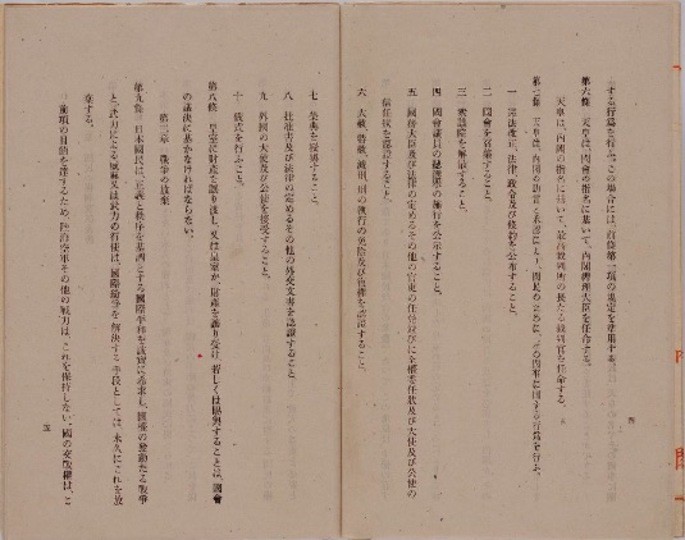 する行爲を行ふ。この場合には、前條第一項の規定を準用する。
第六條　天皇は、國會の指名に基いて、內閣總理大臣を任命する。
天皇は、內閣の指名に基いて、最高裁判所の長たる裁判官を任命する。
第七條　天皇は、內閣の助言と承認により、國民のために、左の國事に關する行爲を行ふ。
一　憲法改正、法律、政令及び條約を公布すること。
二　國會を召集すること。
三　衆議院を解散すること。
四　國會議員の總選擧の施行を公示すること。
五　國務大臣及び法律の定めるその他の官吏の任免並びに全權委任狀及び大使及び公使の
信任狀を認證すること。
六　大赦、特赦、減刑、刑の執行の免除及び復權を認證すること。
四
七　榮典を授與すること。
八　批准書及び法律の定めるその他の外交文書を認證すること。
九　外國の大使及び公使を接受すること。
十　儀式を行ふこと。
第八條　皇室に財產を讓り渡し、又は皇室が、財產を讓り受け、若しくは賜與することは、國會
の議決に基かなければならない。
第二章　戰爭の放棄
第九條　日本國民は、正義と秩序を基調とする國際平和を誠實に希求し、國權の發動たる戰爭
と、武力による威嚇又は武力の行使は、國際紛爭を解決する手段としては、永久にこれを放
棄する。
前項の目的を達するため、陸海空軍その他の戰力は、これを保持しない。國の交戰權は、こ
五